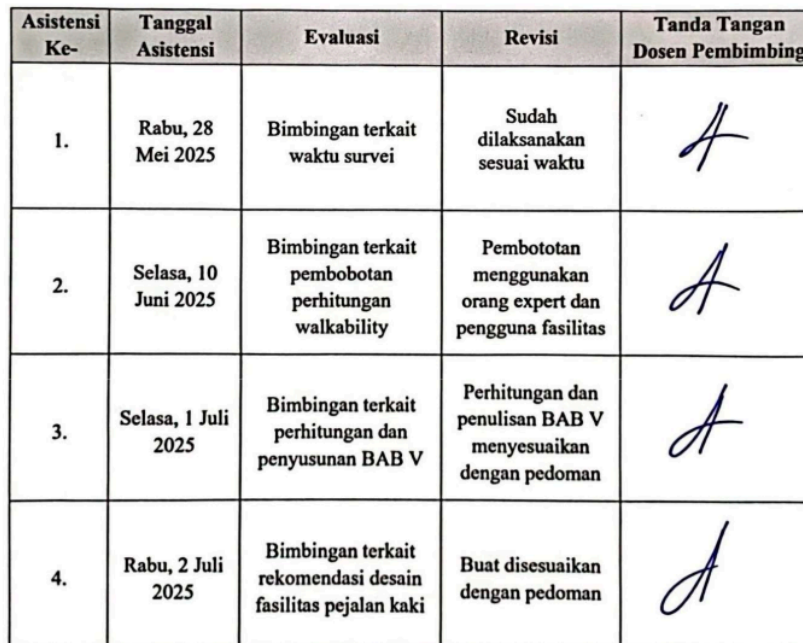 Asistensi Ke-
Tanggal Asistensi
Evaluasi
Revisi
Tanda Tangan Dosen Pembimbing
1.
Rabu, 28
Mei 2025
Bimbingan terkait
waktu survei
Sudah
dilaksanakan
sesuai waktu
2.
Selasa, 10
Juni 2025
Bimbingan terkait
pembobotan
perhitungan
walkability
Pembototan
menggunakan
orang expert dan
pengguna fasilitas
3.
Selasa, 1 Juli
2025
Bimbingan terkait
perhitungan dan
penyusunan BAB V
Perhitungan dan
penulisan BAB V
menyesuaikan
dengan pedoman
4.
Rabu, 2 Juli
2025
Bimbingan terkait
rekomendasi desain
fasilitas pejalan kaki
Buat disesuaikan
dengan pedoman